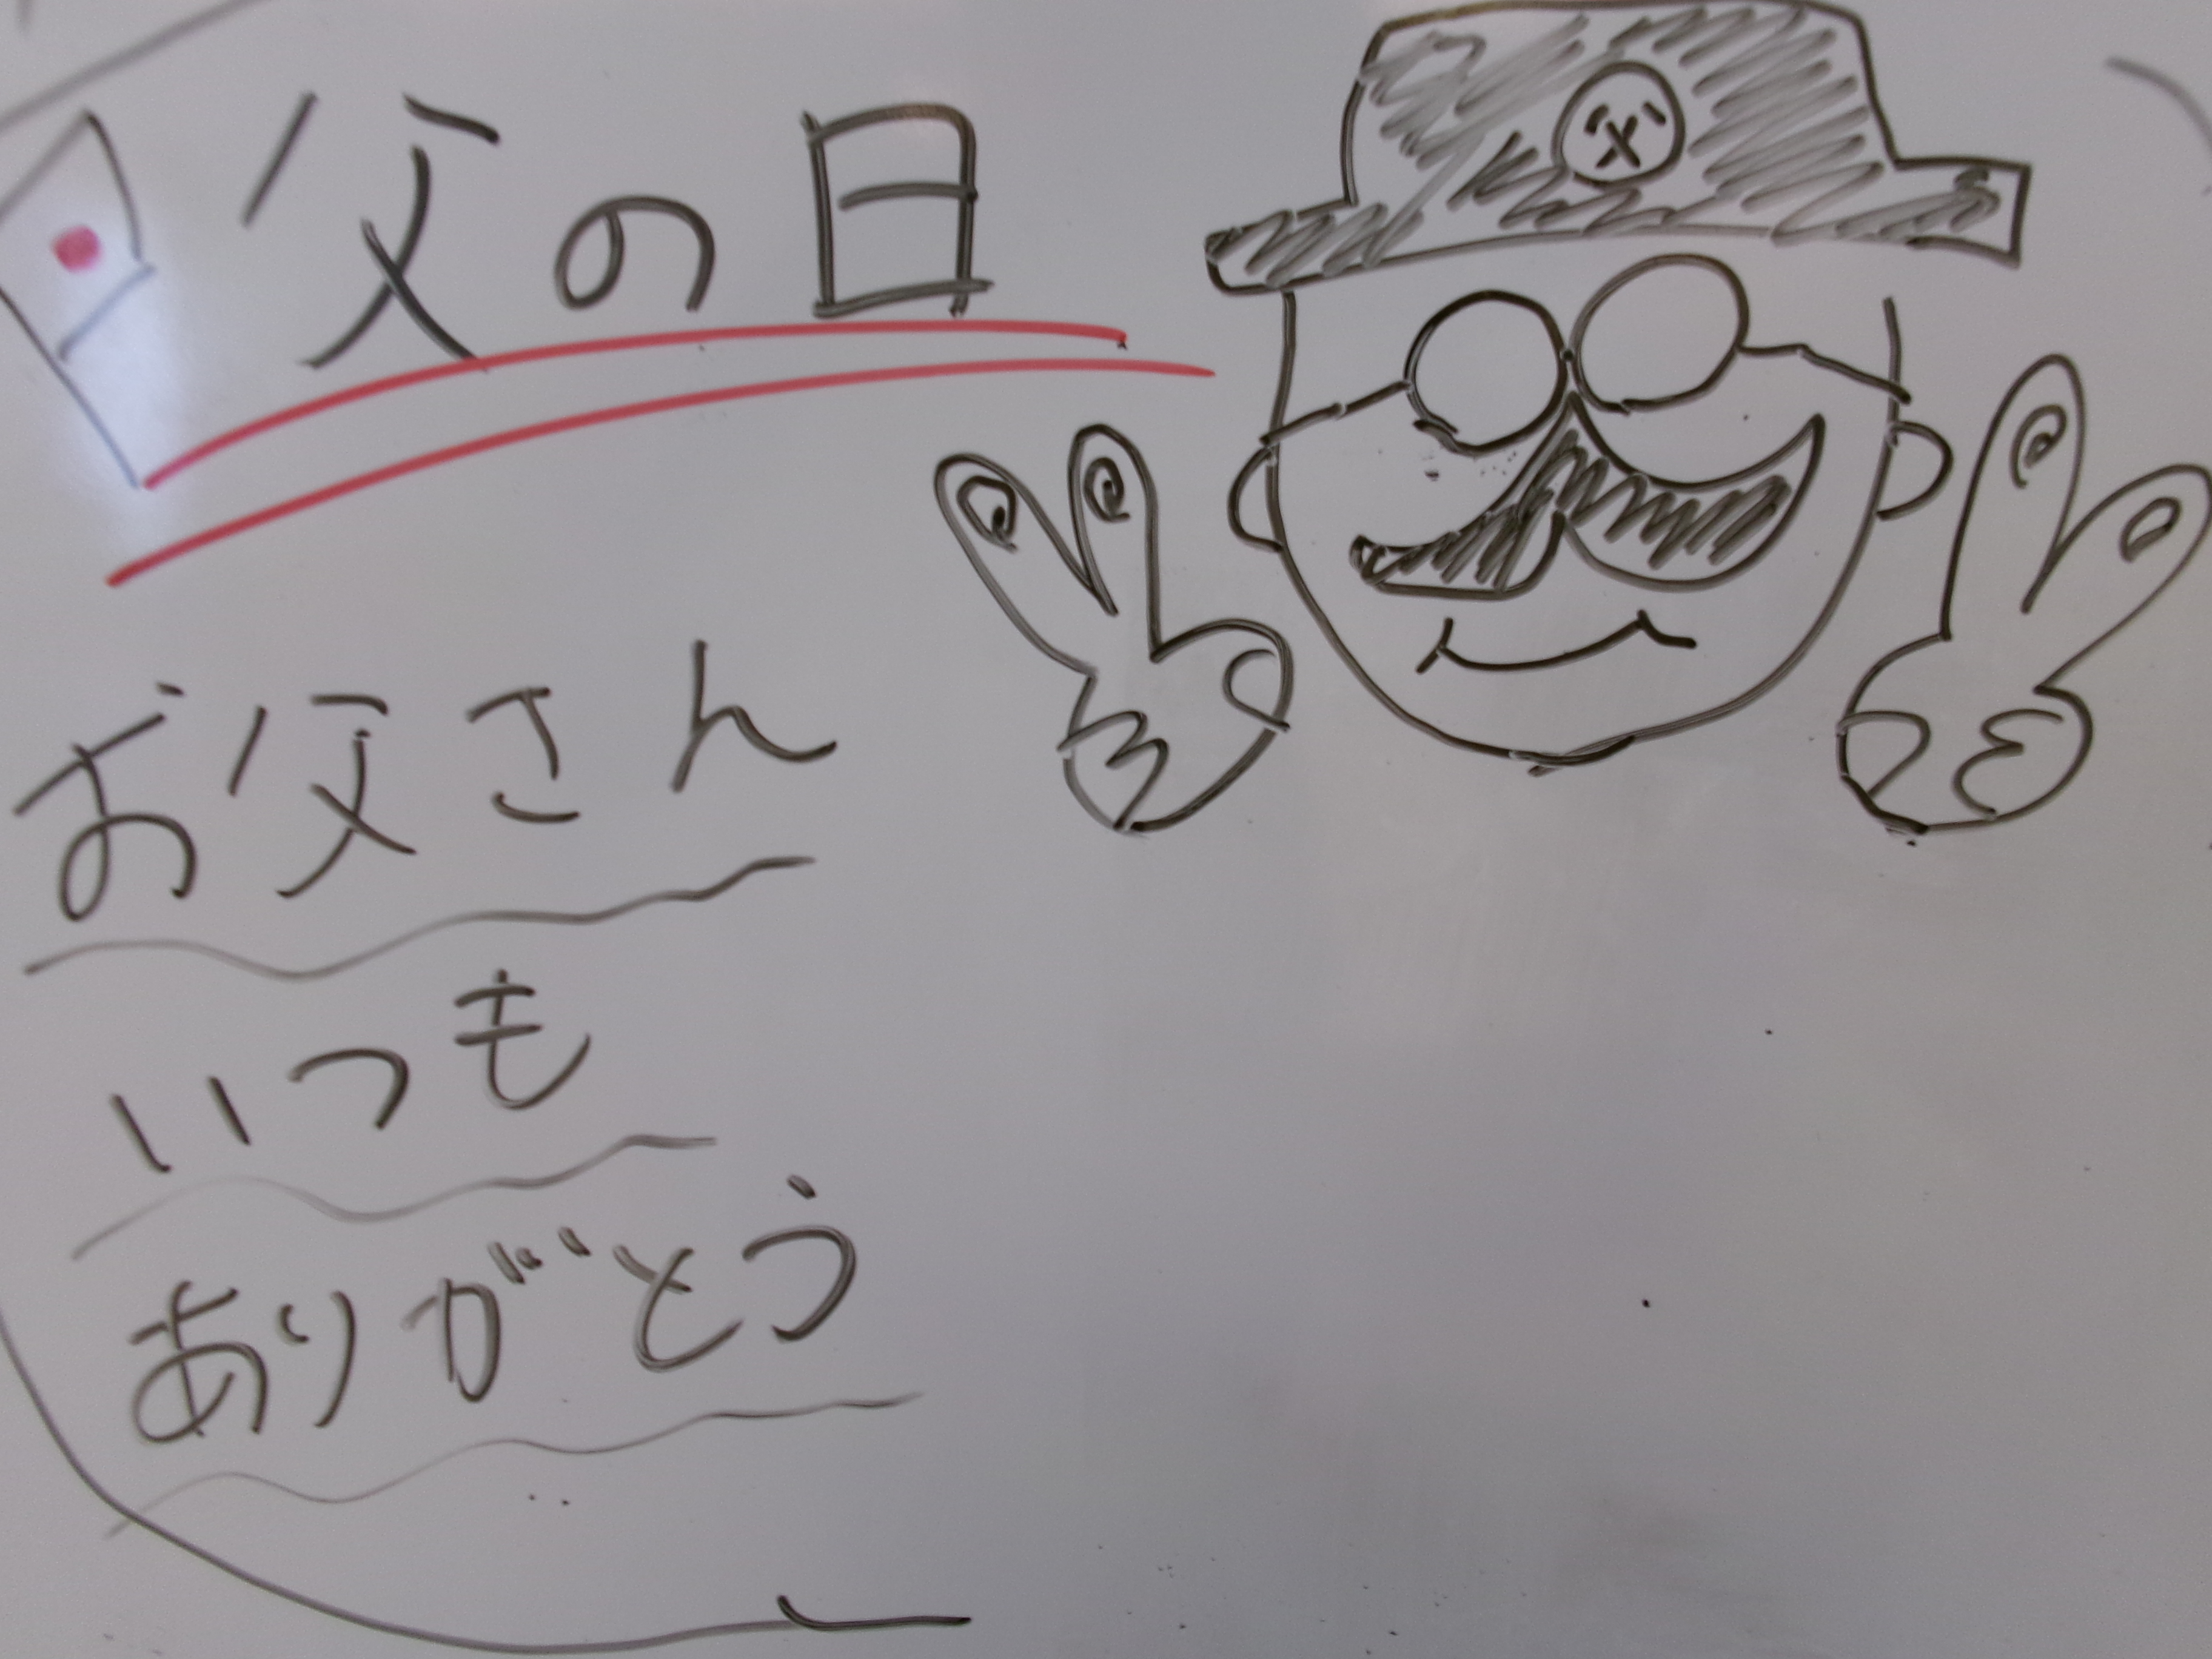 父の日
父
お父さん
いつも
ありがとう